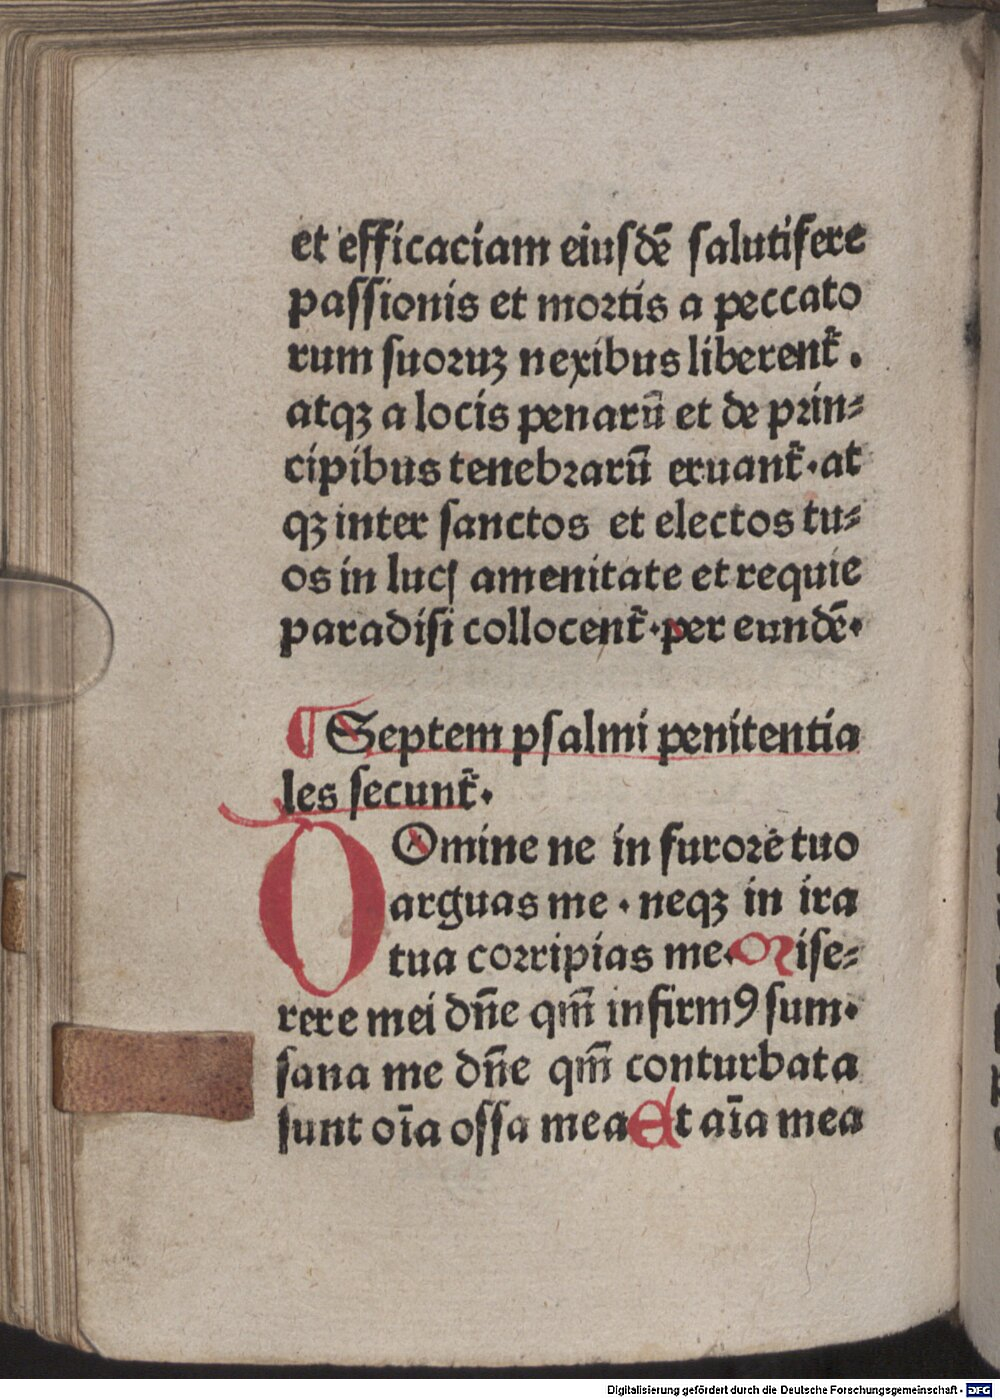 et efficaciam eiusdē salutifere
passionis et mortis a peccato
rum suoruꝫ nexibus liberent᷑ .
atqꝫ a locis penarū et de prin⸗
cipibus tenebrarū eruant᷑ · at
qꝫ inter sanctos et electos tu⸗
os in lucꝭ amenitate et requie
paradisi collocent᷑ · per eundē ·
¶ Septem psalmi penitentia
les secunt᷑ ·
DOmine ne in furorē tuo
arguas me · neqꝫ in ira
tua corripias me · Mise⸗
rere mei dn̄e qm̄ infirmꝰ sum ·
sana me dn̄e qm̄ conturbata
sunt oīa ossa mea Et aīa mea
Digitalisierung gefördert durch die Deutsche Forschungsgemeinschaft - DFG